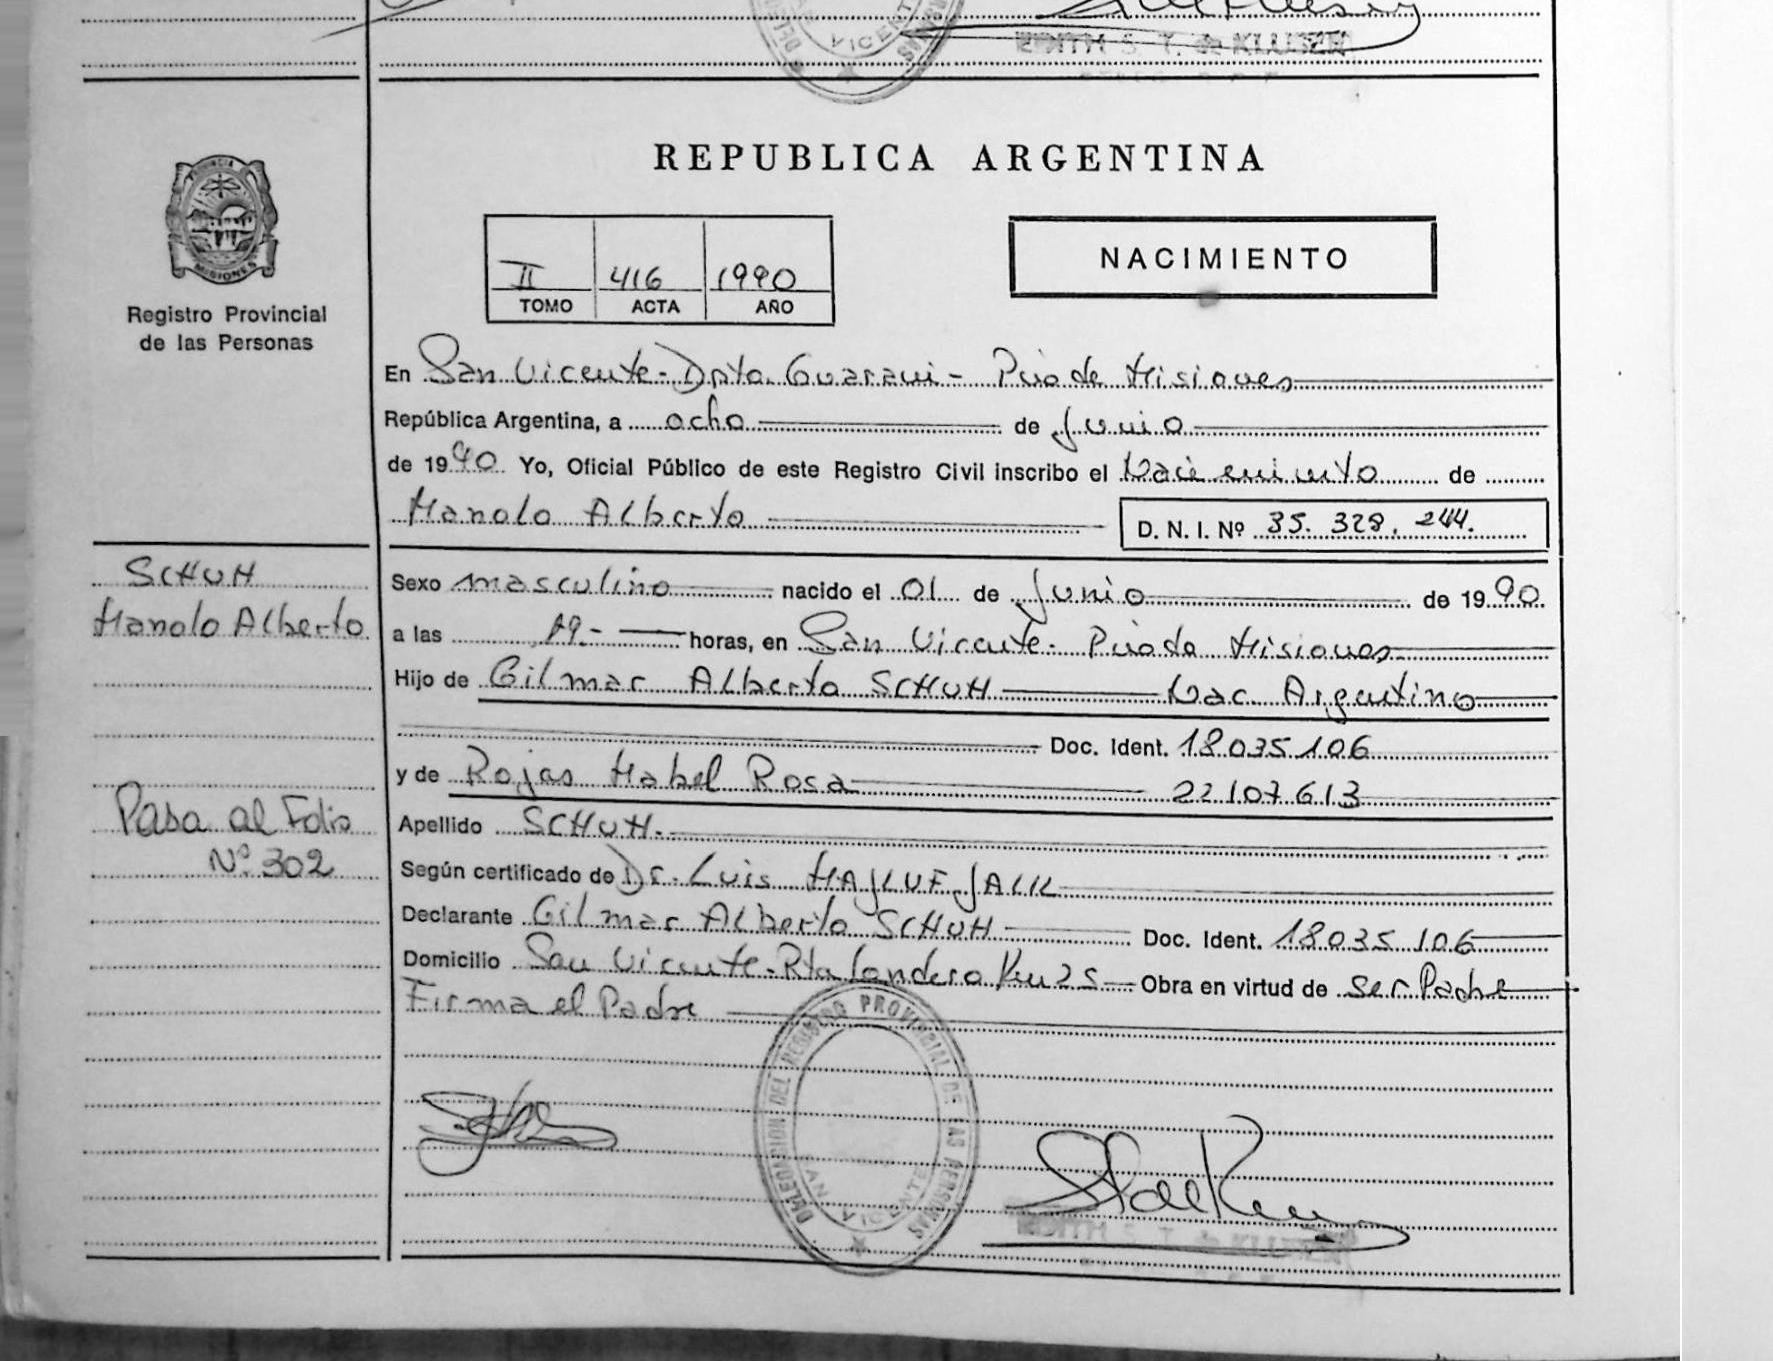 VICENTE
EDITH S. T. de KLUSENER
REPUBLICA ARGENTINA
PROVINCIA
MISIONES
Registro Provincial
de las Personas
II 416 1990
TOMO ACTA AÑO
NACIMIENTO
En San Vicente-Dpto. Guarani- Pcia de Misiones
República Argentina, a ocho de Junio
de 1990 Yo, Oficial Público de este Registro Civil inscribo el Nacimiento de
Manolo Alberto D. N. I. Nº 35. 328. 244.
SCHUH
Manolo Alberto
Sexo masculino nacido el 01 de Junio de 1990
a las 19.- horas, en San Vicente- Pcia de Misiones
Hijo de Gilmar Alberto SCHUH Nac. Argentino
Doc. Ident. 18.035.106
y de Rojas Mabel Rosa 22.107.613
Pasa al Folio
Nº 302
Apellido SCHUH.
Según certificado de Dr. Luis MAJLUF JALIL
Declarante Gilmar Alberto SCHUH Doc. Ident. 18.035.106
Domicilio San Vicente-Rta Londero Km 25 Obra en virtud de ser Padre
Firma el Padre
DELEGACION DEL REGISTRO PROVINCIAL DE LAS PERSONAS
SAN VICENTE
EDITH S. T. de KLUSENER